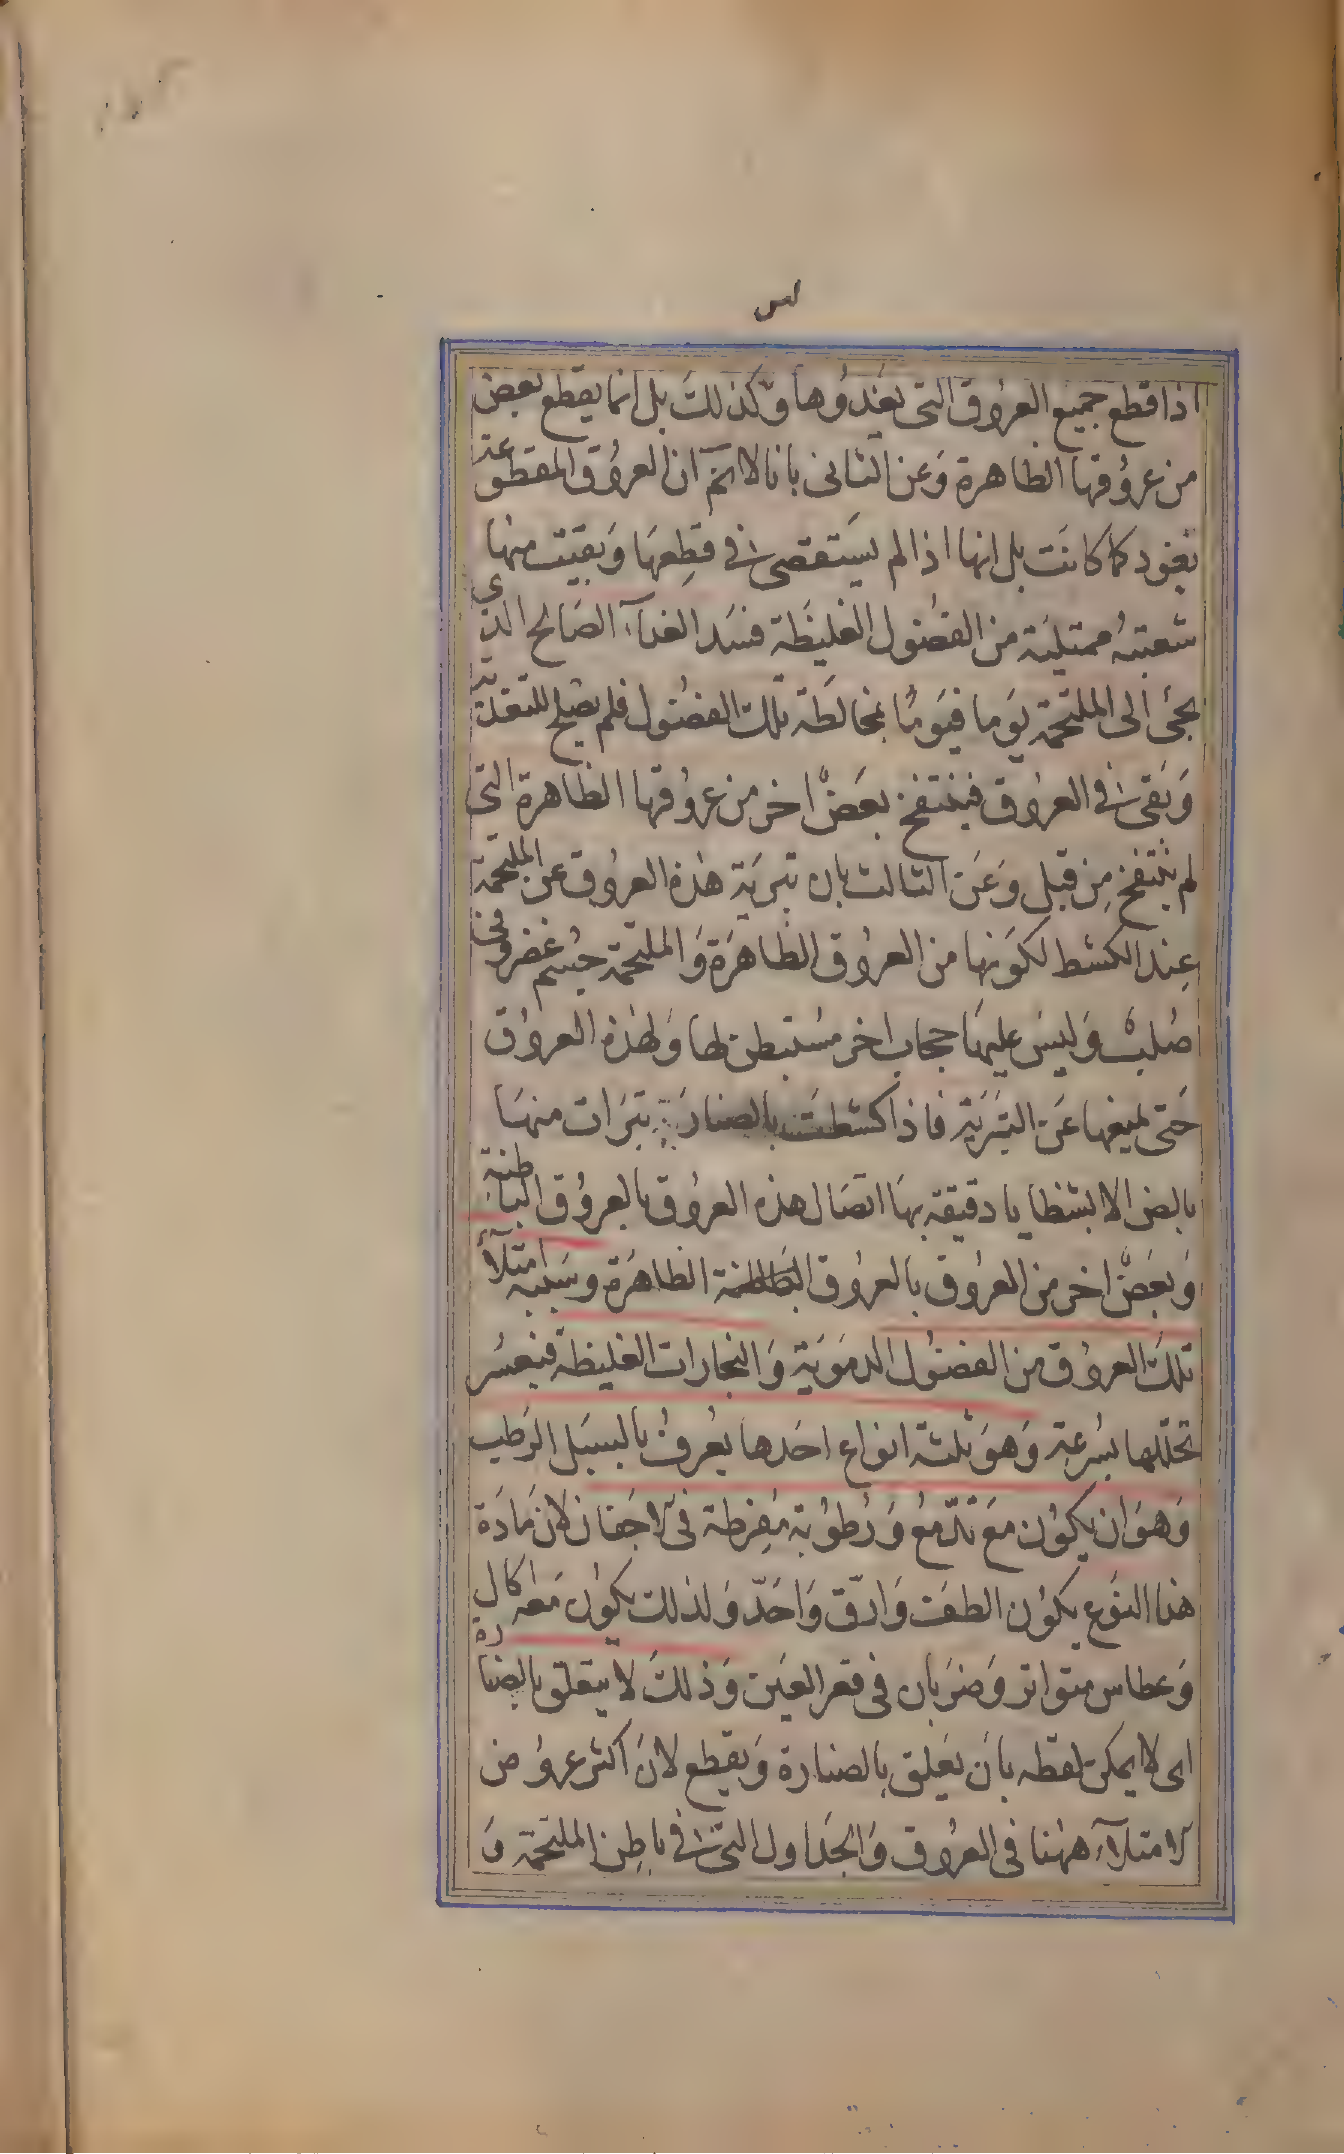 ليس
اذا قطع جميع العروق التى يغذوها وكذلك بل انما يقطع بعض
من عروقها الظاهرة وعن الثانى بانا لا نم ان العروق المقطوعة
تعود كما كانت بل انها اذا لم يستقصى فى قطعها وبقيت منها
شعبة ممتلية من الفضول الغليظة فسد الغذآء الصالح الذى
يجئ الى الملتحمة يوما فيوما بمخالطة تلك الفضول فلم يصلح للتغذية
وبقى فى العروق فينتفخ بعض اخر من عروقها الظاهرة التى
لم ينتفخ من قبل وعن الثالث بان تبرية هذه العروق عن الملتحمة
عند الكشط لكونها من العروق الظاهرة والملتحمة جسم غضروفى
صلب وليس عليها حجاب اخر مستبطن لها ولهذه العروق
حتى يمنعها عن التبرية فاذا كشطت بالصنارة تبرات منها
الا بشظايا دقيقة بها اتصال هذه العروق بالعروق الباطنة
وبعض اخر من العروق بالعروق الظاهرة وسببه امتلآء
تلك العروق من الفضول الدموية والبخارات الغليظة فيعسر
تحللها بسرعة وهو ثلثة انواع احدها يعرف بالسبل الرطب
وهو ان يكون مع تدمع ورطوبة مفرطة فى الاجفان لان مادة
هذا النوع يكون الطف وارق واحد ولذلك يكون معه اكال
وعطاس متواتر وضربان فى قعر العين وذلك لا يتعلق بالصنارة
اى لا يمكن لقطه بان يعلق بالصنارة ويقطع لان اكثر عروض
الامتلآء ههنا فى العروق والجداول التى فى باطن الملتحمة و